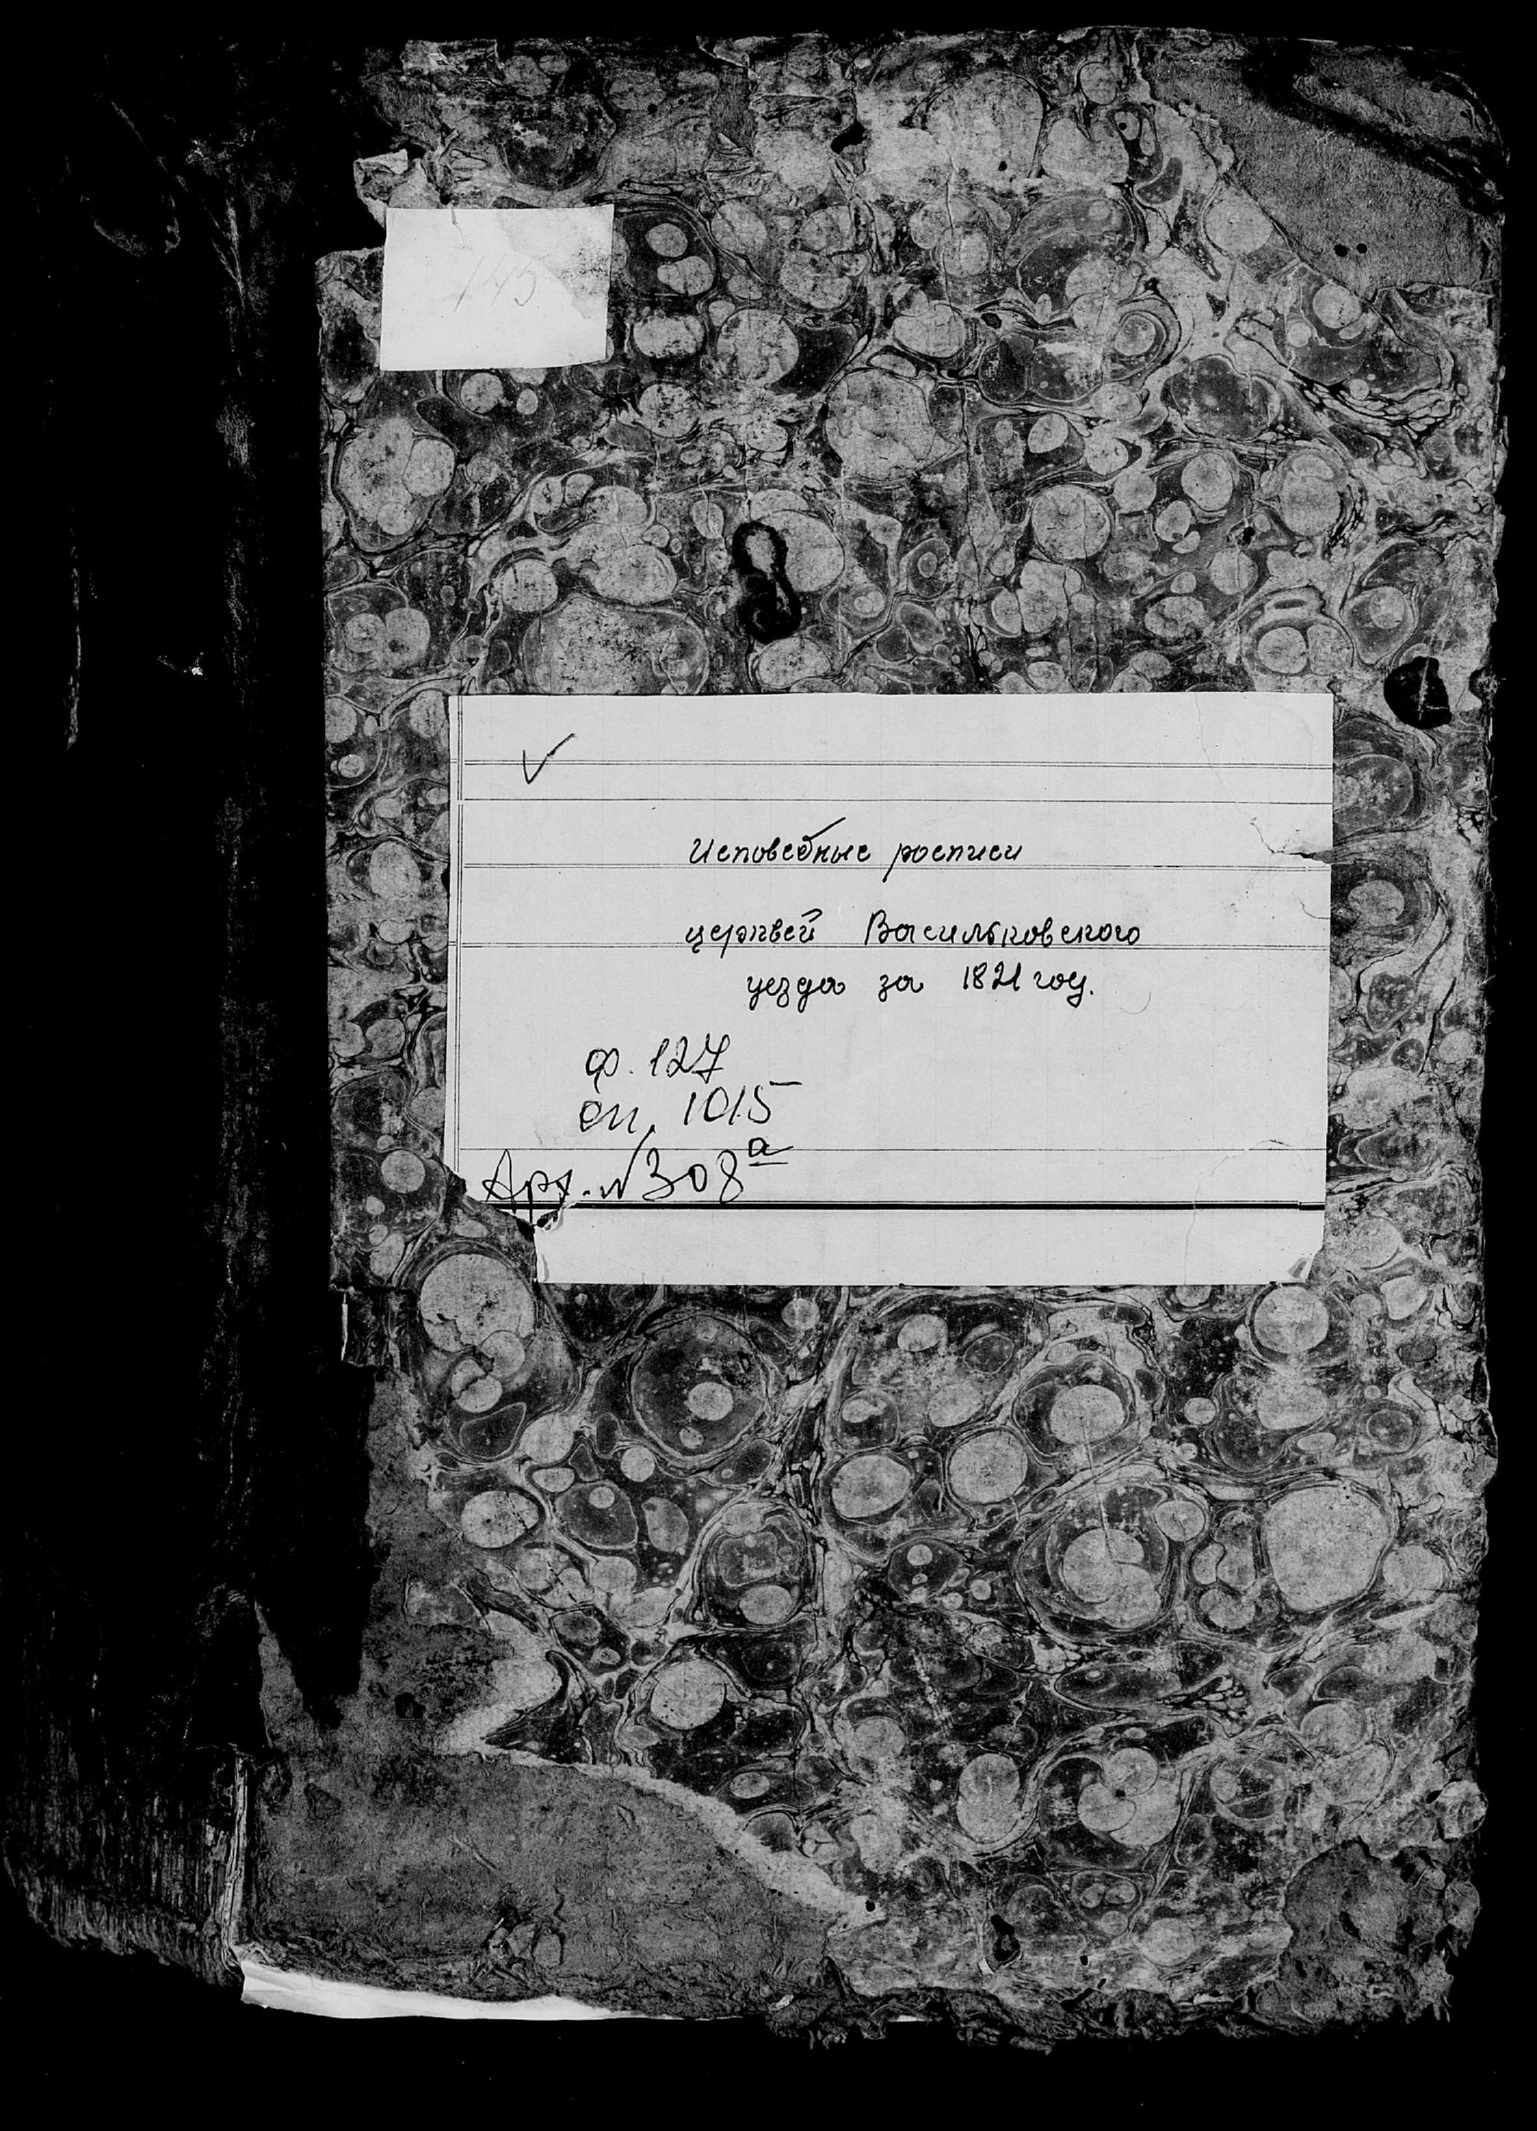 145
✓
Исповедные росписи
церквей Васильковского
уезда за 1821 год.
ф. 127
оп. 1015
Арх. №308а